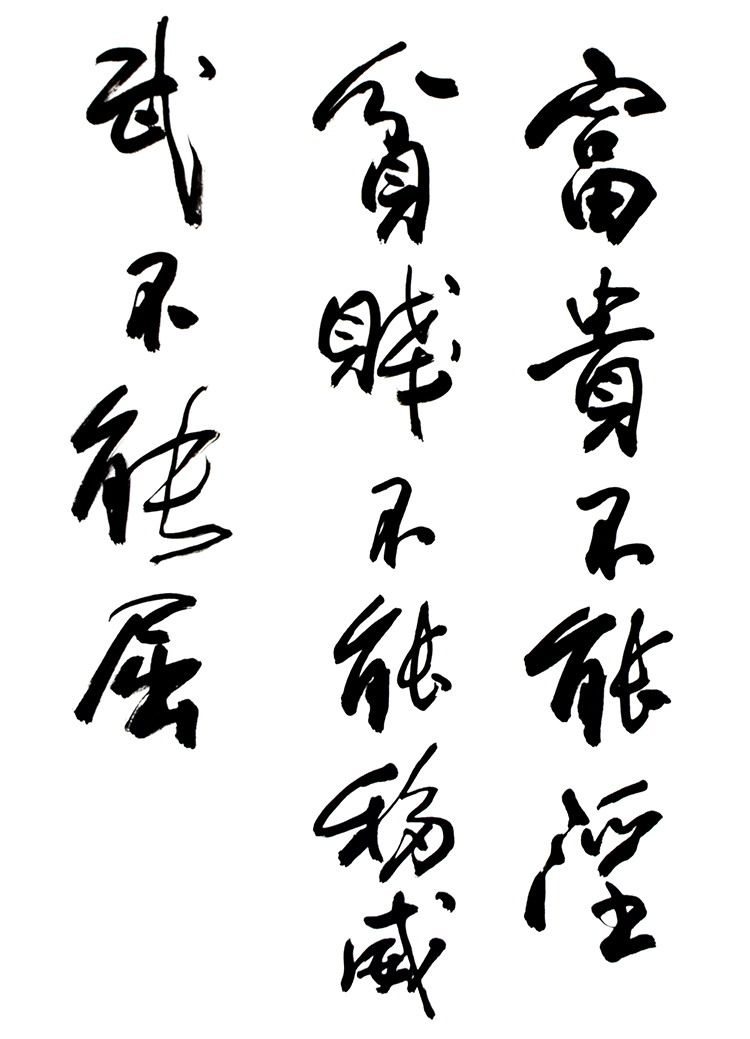 富貴不能淫
貧賤不能移威
武不能屈